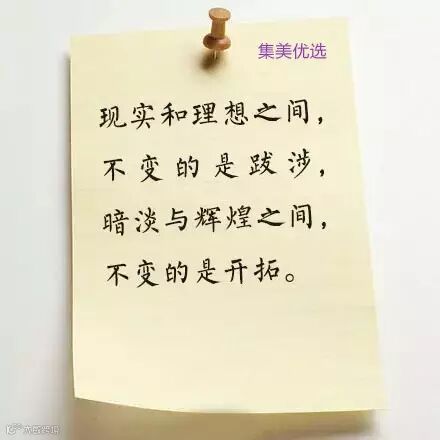 集美优选
现实和理想之间，
不变的是跋涉，
暗淡与辉煌之间，
不变的是开拓。